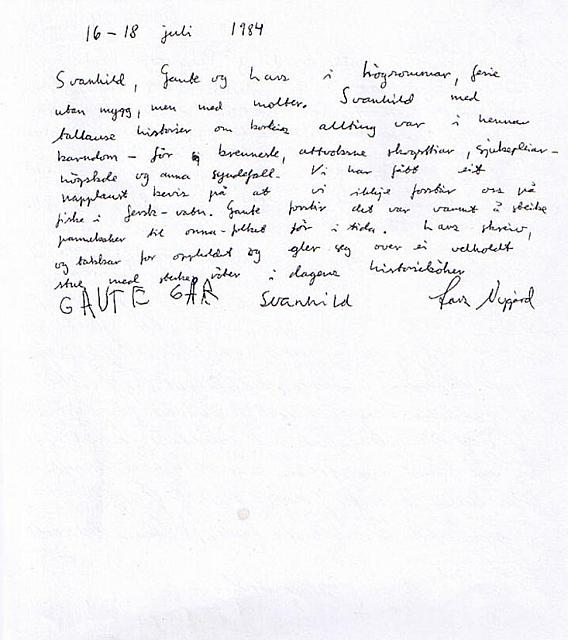 16-18 juli 1984
Svanhild, Gaute og Lars i högsommar, ferie
utan mygg, men med molter. Svanhild med
tallause historier om korleis allting var i hennar
barndom - før brennerte, attvoksne skogstiar, sjukepleiar-
högskole og anna syndefall. Vi har fått eit
napplaust bevis på at vi ikkje forstår oss på
fiske i fersk-vatn. Gaute forstår det var vanut å steike
pannekaker til onna-folket för i tida. Lars skreiv,
og takkar for opphaldet og gler seg over ei velholdt
stue med sterke röter i dagens historieböker
GAUTE GAR Svanhild Lars Nygård